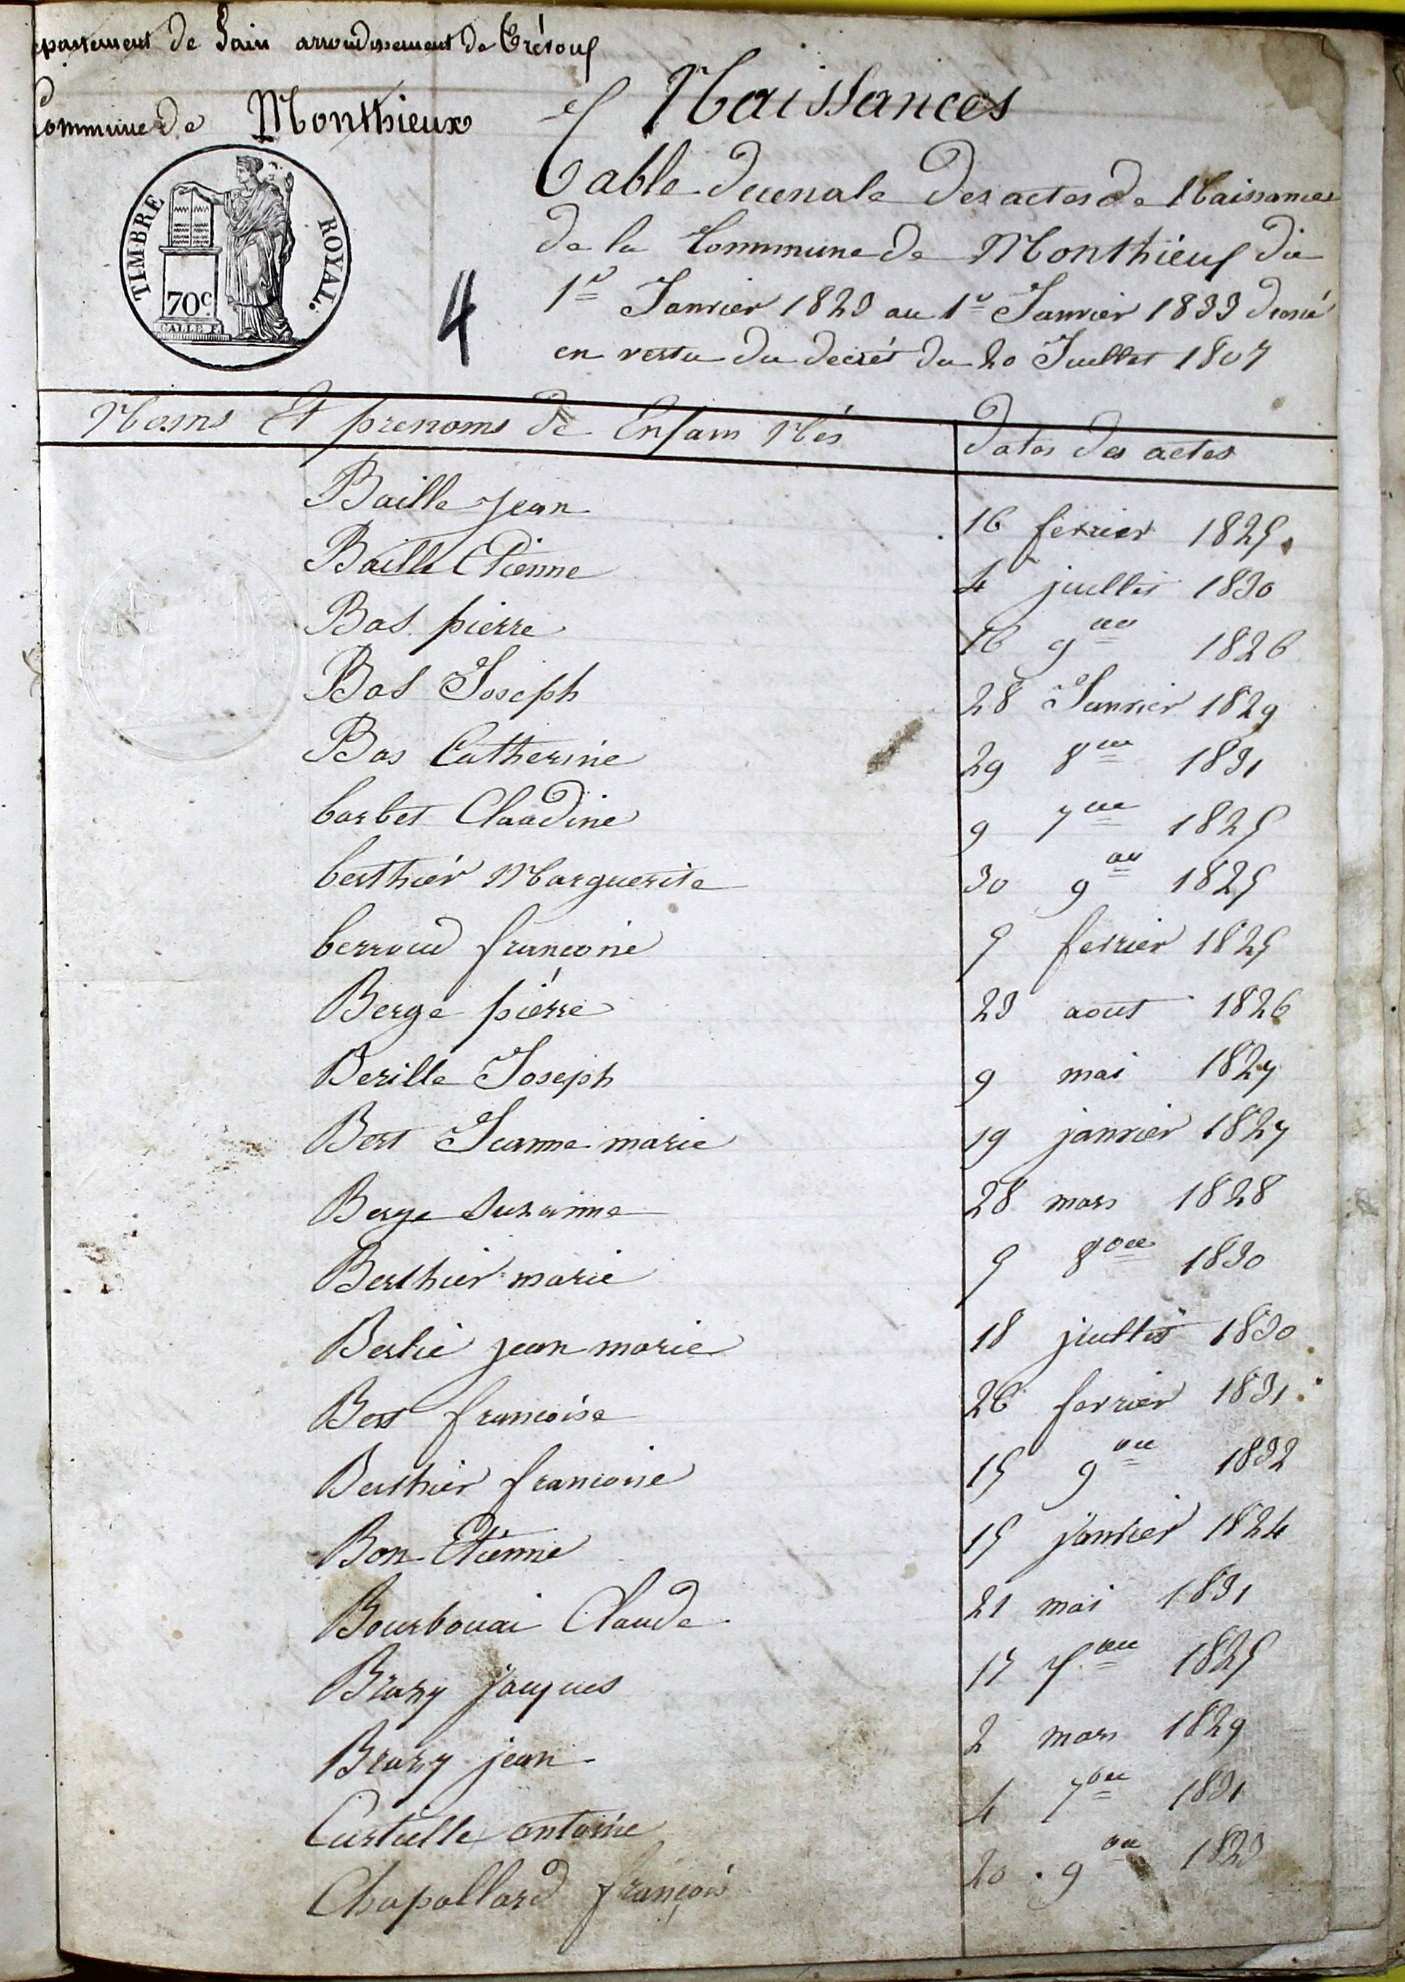 epartement de Lain arrondissement de Trévoux
Commune de Monthieux
TIMBRE ROYAL.
70c
4
Naissances
Table decenale des actes de Naissances
de la Commune de Monthieux du
1er Janvier 1823 au 1er Janvier 1833 dressé
en vertu du decrét du 20 Juillet 1807
Noms Et prenoms de Enfans Nés
dates des actes
Baille jean 16 fevrier 1825
Baille Etienne 4 juillet 1830
Bas pierre 16 9bre 1826
Bas Joseph 28 Janvier 1829
Bas Catherine 29 8bre 1831
barbet Claudine 9 7bre 1825
berthier Marguerite 30 9bre 1825
berroud francoise 5 fevrier 1825
Berge pierre 23 aout 1826
Berille Joseph 9 mai 1827
Bert Jeanne marie 19 janvier 1827
Berge Suzanne 28 mars 1828
Berthier marie 5 8bre 1830
Berlié jean marie 18 juillet 1830
Bert francoise 26 fevrier 1831
Berthier francoise 15 9bre 1832
Bon Etienne 15 janvier 1824
Bourbouai Claude 21 mai 1831
Brazy jacques 17 7bre 1825
Brazy jean 2 mars 1829
Curtielle antoine 4 7bre 1831
Chapollard françois 20 9bre 1823